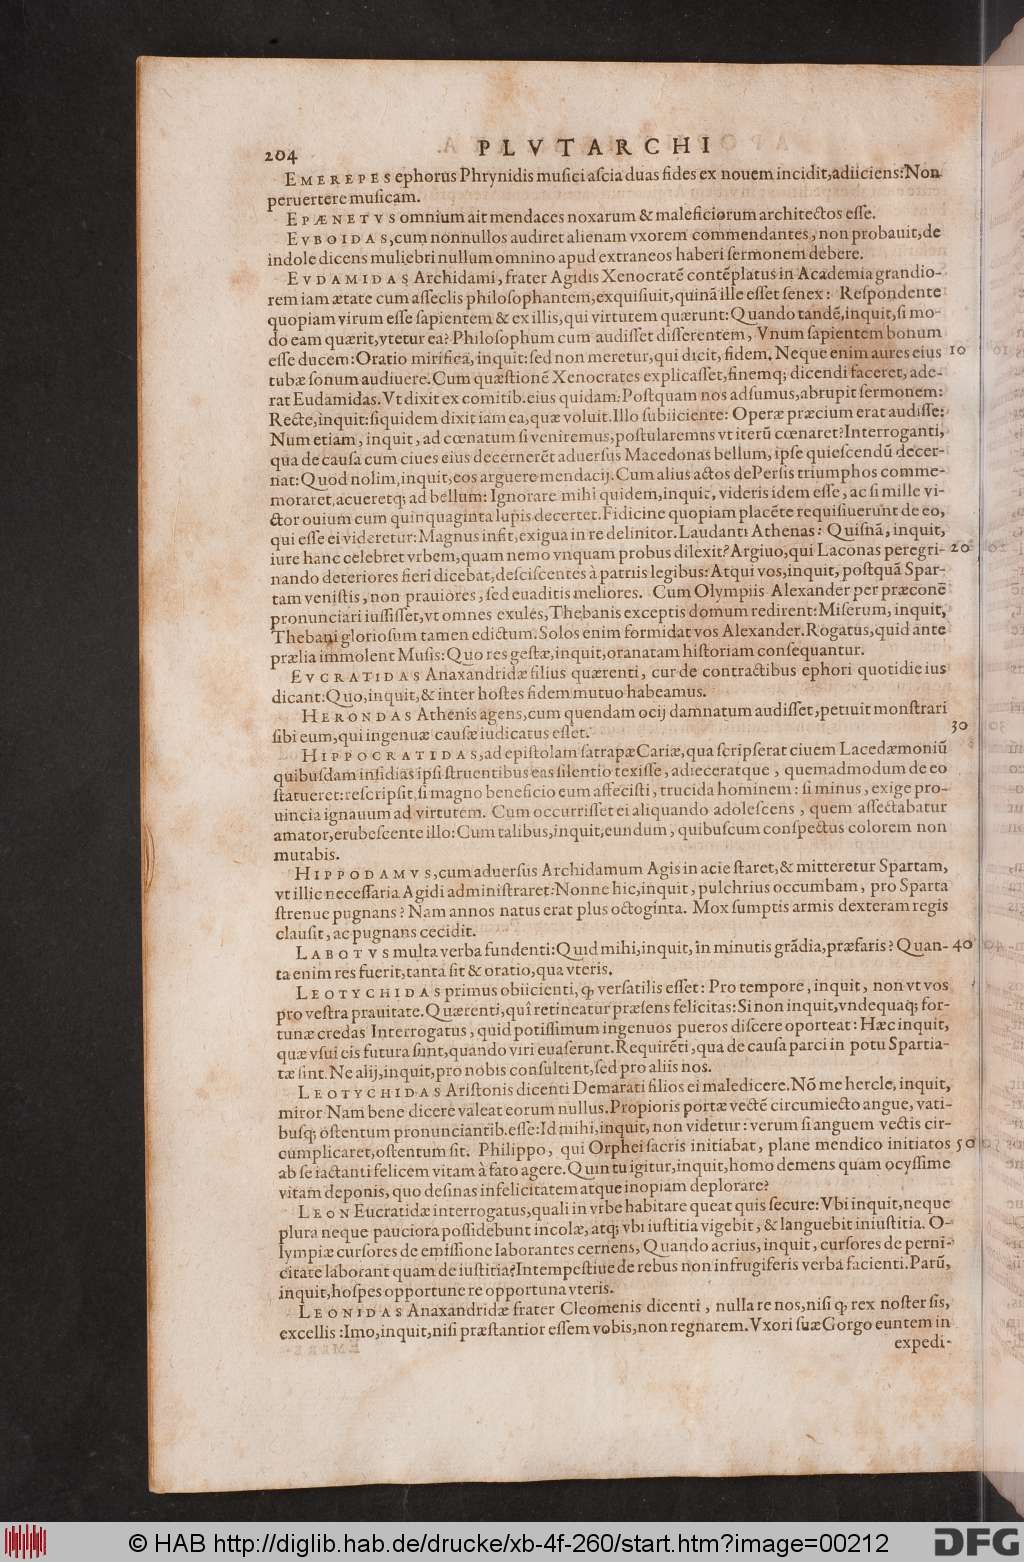 204 PLVTARCHI
EMEREPES ephorus Phrynidis musici ascia duas fides ex nouem incidit, adiiciens: Non
peruertere musicam.
EPÆNETVS omnium ait mendaces noxarum & maleficiorum architectos esse.
EVBOIDAS, cum nonnullos audiret alienam vxorem commendantes, non probauit, de
indole dicens muliebri nullum omnino apud extraneos haberi sermonem debere.
EVDAMIDAS Archidami, frater Agidis Xenocratē contēplatus in Academia grandio-
rem iam ætate cum asseclis philosophantem, exquisiuit, quinā ille esset senex: Respondente
quopiam virum esse sapientem & ex illis, qui virtutem quærunt: Quando tandē, inquit, si mo-
do eam quærit, vtetur ea? Philosophum cum audisset disserentem, Vnum sapientem bonum
esse ducem: Oratio mirifica, inquit: sed non meretur, qui dicit, fidem. Neque enim aures eius 10
tubæ sonum audiuere. Cum quæstionē Xenocrates explicasset, finemq; dicendi faceret, ade-
rat Eudamidas. Vt dixit ex comitib. eius quidam: Postquam nos adsumus, abrupit sermonem:
Recte, inquit: siquidem dixit iam ea, quæ voluit. Illo subiiciente: Operæ præcium erat audisse:
Num etiam, inquit, ad cœnatum si veniremus, postularemns vt iterū cœnaret? Interroganti,
qua de causa cum ciues eius decernerēt aduersus Macedonas bellum, ipse quiescendū decer-
nat: Quod nolim, inquit, eos arguere mendacij. Cum alius actos de Persis triumphos comme-
moraret, acueretq; ad bellum: Ignorare mihi quidem, inquit, videris idem esse, ac si mille vi-
ctor ouium cum quinquaginta lupis decertet. Fidicine quopiam placēte requisiuerunt de eo,
qui esse ei videretur: Magnus infit, exigua in re delinitor. Laudanti Athenas: Quisnā, inquit,
iure hanc celebret vrbem, quam nemo vnquam probus dilexit? Argiuo, qui Laconas peregri- 20
nando deteriores fieri dicebat, desciscentes à patriis legibus: Atqui vos, inquit, postquā Spar-
tam venistis, non prauiores, sed euaditis meliores. Cum Olympiis Alexander per præconē
pronunciari iussisset, vt omnes exules, Thebanis exceptis domum redirent: Miserum, inquit,
Thebani gloriosum tamen edictum. Solos enim formidat vos Alexander. Rogatus, quid ante
prælia immolent Musis: Quo res gestæ, inquit, oranatam historiam consequantur.
EVCRATIDAS Anaxandridæ filius quærenti, cur de contractibus ephori quotidie ius
dicant: Quo, inquit, & inter hostes fidem mutuo habeamus.
HERONDAS Athenis agens, cum quendam ocij damnatum audisset, petiuit monstrari
sibi eum, qui ingenuæ causæ iudicatus esset. 30
HIPPOCRATIDAS, ad epistolam satrapæ Cariæ, qua scripserat ciuem Lacedæmoniū
quibusdam insidias ipsi struentibus eas silentio texisse, adieceratque, quemadmodum de eo
statueret: rescripsit, si magno beneficio eum affecisti, trucida hominem: si minus, exige pro-
uincia ignauum ad virtutem. Cum occurrisset ei aliquando adolescens, quem assectabatur
amator, erubescente illo: Cum talibus, inquit, eundum, quibuscum conspectus colorem non
mutabis.
HIPPODAMVS, cum aduersus Archidamum Agis in acie staret, & mitteretur Spartam,
vt illic necessaria Agidi administraret: Nonne hic, inquit, pulchrius occumbam, pro Sparta
strenue pugnans? Nam annos natus erat plus octoginta. Mox sumptis armis dexteram regis
clausit, ac pugnans cecidit.
LABOTVS multa verba fundenti: Quid mihi, inquit, in minutis grādia, præfaris? Quan- 40
ta enim res fuerit, tanta sit & oratio, qua vteris.
LEOTYCHIDAS primus obiicienti, ꝙ versatilis esset: Pro tempore, inquit, non vt vos
pro vestra prauitate. Quærenti, quî retineatur præsens felicitas: Si non inquit, vndequaq; for-
tunæ credas Interrogatus, quid potissimum ingenuos pueros discere oporteat: Hæc inquit,
quæ vsui eis futura sunt, quando viri euaserunt. Requirēti, qua de causa parci in potu Spartia-
tæ sint. Ne alij, inquit, pro nobis consultent, sed pro aliis nos.
LEOTYCHIDAS Aristonis dicenti Demarati filios ei maledicere. Nō me hercle, inquit,
miror Nam bene dicere valeat eorum nullus. Propioris portæ vectē circumiecto angue, vati-
busq; ostentum pronunciantib. esse: Id mihi, inquit, non videtur: verum si anguem vectis cir-
cumplicaret, ostentum sit. Philippo, qui Orphei sacris initiabat, plane mendico initiatos 50
ab se iactanti felicem vitam à fato agere. Quin tu igitur, inquit, homo demens quam ocyssime
vitam deponis, quo desinas infelicitatem atque inopiam deplorare?
LEON Eucratidæ interrogatus, quali in vrbe habitare queat quis secure: Vbi inquit, neque
plura neque pauciora possidebunt incolæ, atq; vbi iustitia vigebit, & languebit iniustitia. O-
lympiæ cursores de emissione laborantes cernens, Quando acrius, inquit, cursores de perni-
citate laborant quam de iustitia? Intempestiue de rebus non infrugiferis verba facienti. Parū,
inquit, hospes opportune re opportuna vteris.
LEONIDAS Anaxandridæ frater Cleomenis dicenti, nulla re nos, nisi ꝙ rex noster sis,
excellis: Imo, inquit, nisi præstantior essem vobis, non regnarem. Vxori suæ Gorgo euntem in
expedi-
© HAB http://diglib.hab.de/drucke/xb-4f-260/start.htm?image=00212 DFG